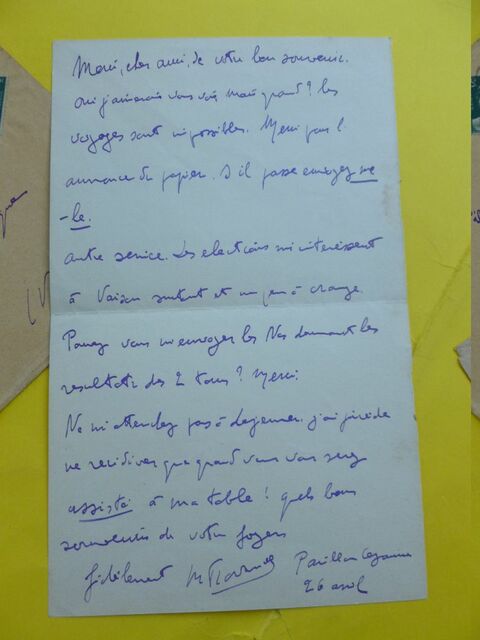 Merci, cher ami, de votre bon souvenir.
oui j'aimerais vous voir mais quand? les
voyages sont impossibles. Merci pour l
annonce du papier. S il passe envoyez me
-le.
autre service. Les elections m interessent
à Vaison surtout et un peu à orange.
Pouvez vous m'envoyer les Nos donnant les
resultats des 2 tours? Merci.
Ne m'attendez pas à dejeuner. j'ai decidé
ne recidiver que quand vous vous serez
assisté à ma table! quels bons
souvenirs de votre foyer
fidèlement Pavillon Cezanne
26 avril